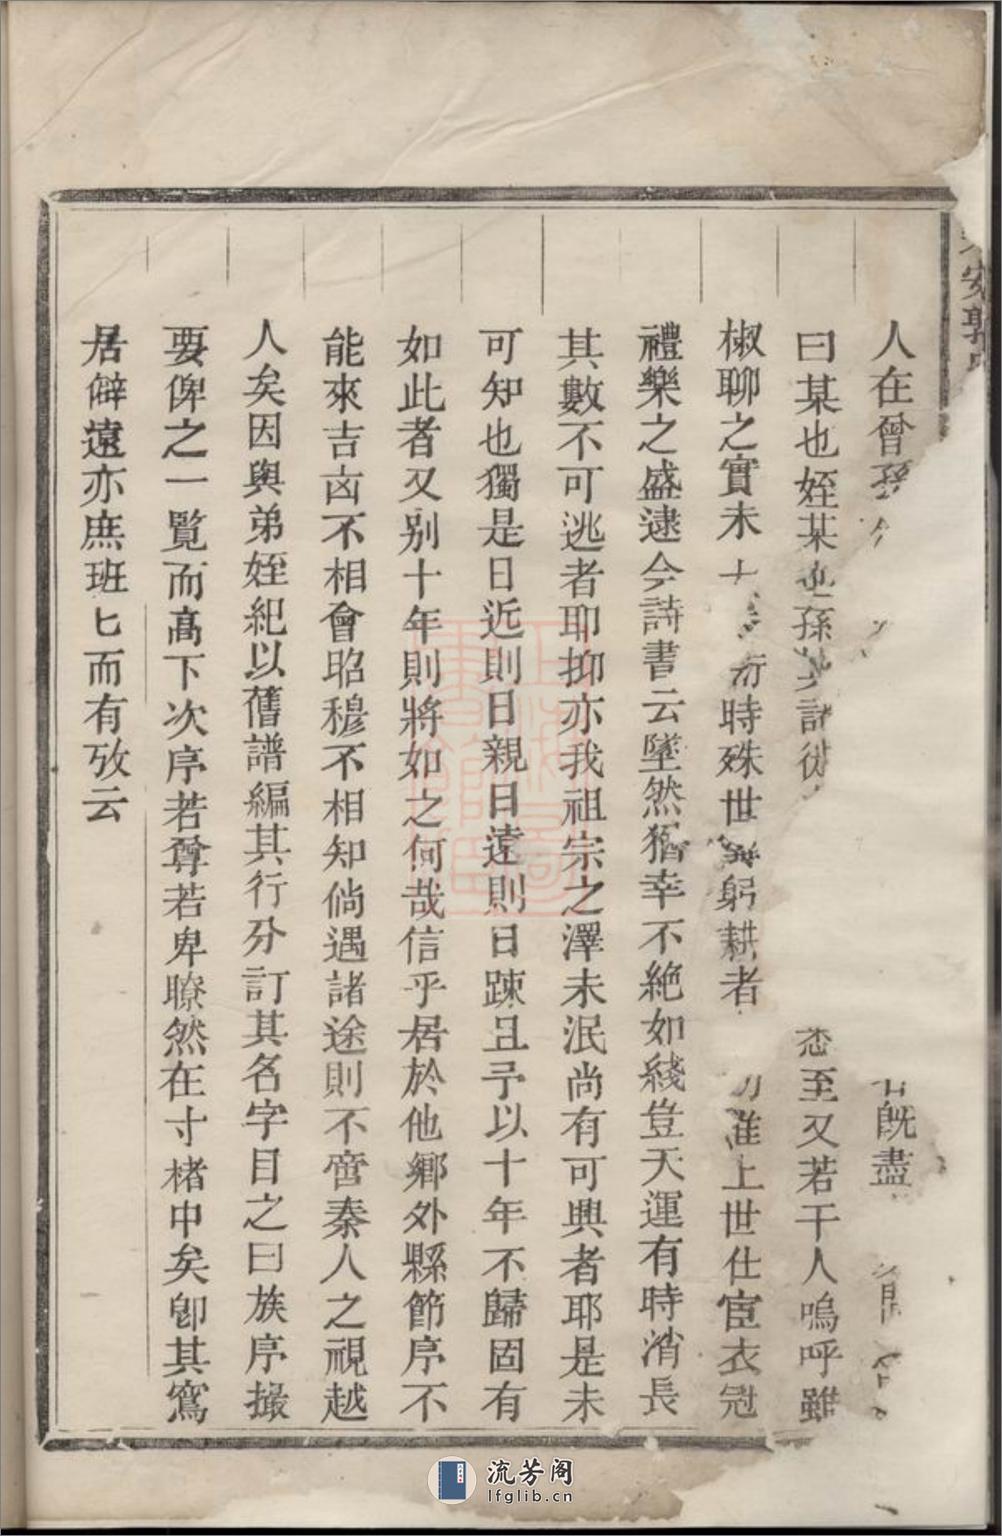 安郭
人在曾孫既盡
曰某也姪某也孫悉至又若干人嗚呼雖
椒聊之實未時殊世躬耕者上世仕宦衣冠
禮樂之盛逮今詩書云墜然猶幸不絶如綫豈天運有時消長
其數不可逃者耶抑亦我祖宗之澤未泯尚有可興者耶是未
可知也獨是日近則日親日遠則日踈且予以十年不歸固有
如此者又别十年則將如之何哉信乎居於他鄉外縣節序不
能來吉凶不相會昭穆不相知倘遇諸途則不啻秦人之視越
人矣因與弟姪紀以舊譜編其行分訂其名字目之曰族序撮
要俾之一覧而高下次序若尊若卑瞭然在寸楮中矣卽其寫
居僻遠亦庶班匕而有攷云
流芳阁
lfglib.cn